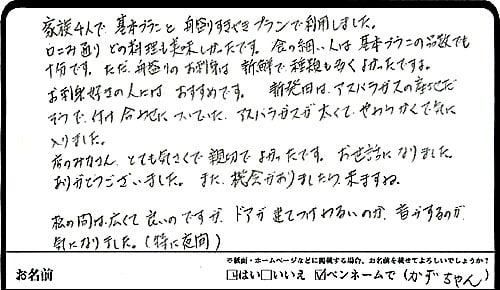 家族4人で基本プランと舟盛りすきやきプランで利用しました。
口コミ通りどの料理も美味しかったです。食の細い人は基本プランの品数でも
十分です。ただ、舟盛りのお刺身は新鮮で種類も多くよかったですよ。
お刺身好きの人にはおすすめです。新発田は、アスパラガスの産地だ
そうで、付け合わせについていた、アスパラガスが太くて、やわらかくて気に
入りました。
おかみさん、とても気さくで親切でよかったです。お世話になりました。
ありがとうございました。また、機会がありましたら、来ますね。
松の間は、広くて良いのですが、ドアが建てつけわるいのか、音がするのが、
気になりました。(特に夜間)
※紙面・ホームページなどに掲載する場合、お名前を載せてよろしいでしょうか?
お名前 □はい□いいえ ☑ペンネームで(かずちゃん)